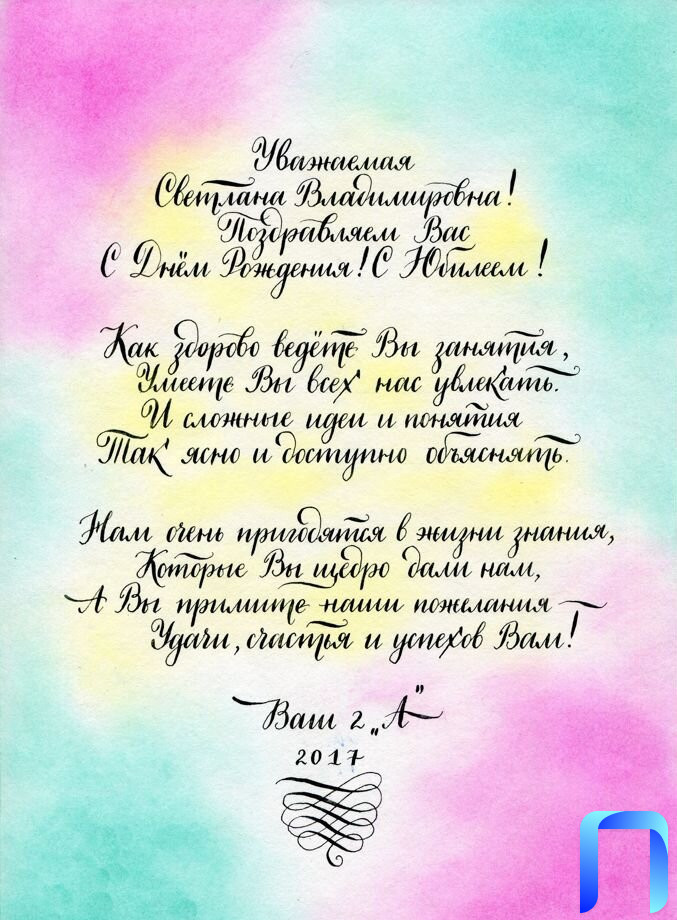 Уважаемая
Светлана Владимировна!
Поздравляем Вас
С Днём Рождения! С Юбилеем!
Как здорово ведёте Вы занятия,
Умеете Вы всех нас увлекать.
И сложные идеи и понятия
Так ясно и доступно объяснять.
Нам очень пригодятся в жизни знания,
Которые Вы щедро дали нам,
А Вы примите наши пожелания —
Удачи, счастья и успехов Вам!
Ваш 2 „А”
2017
П